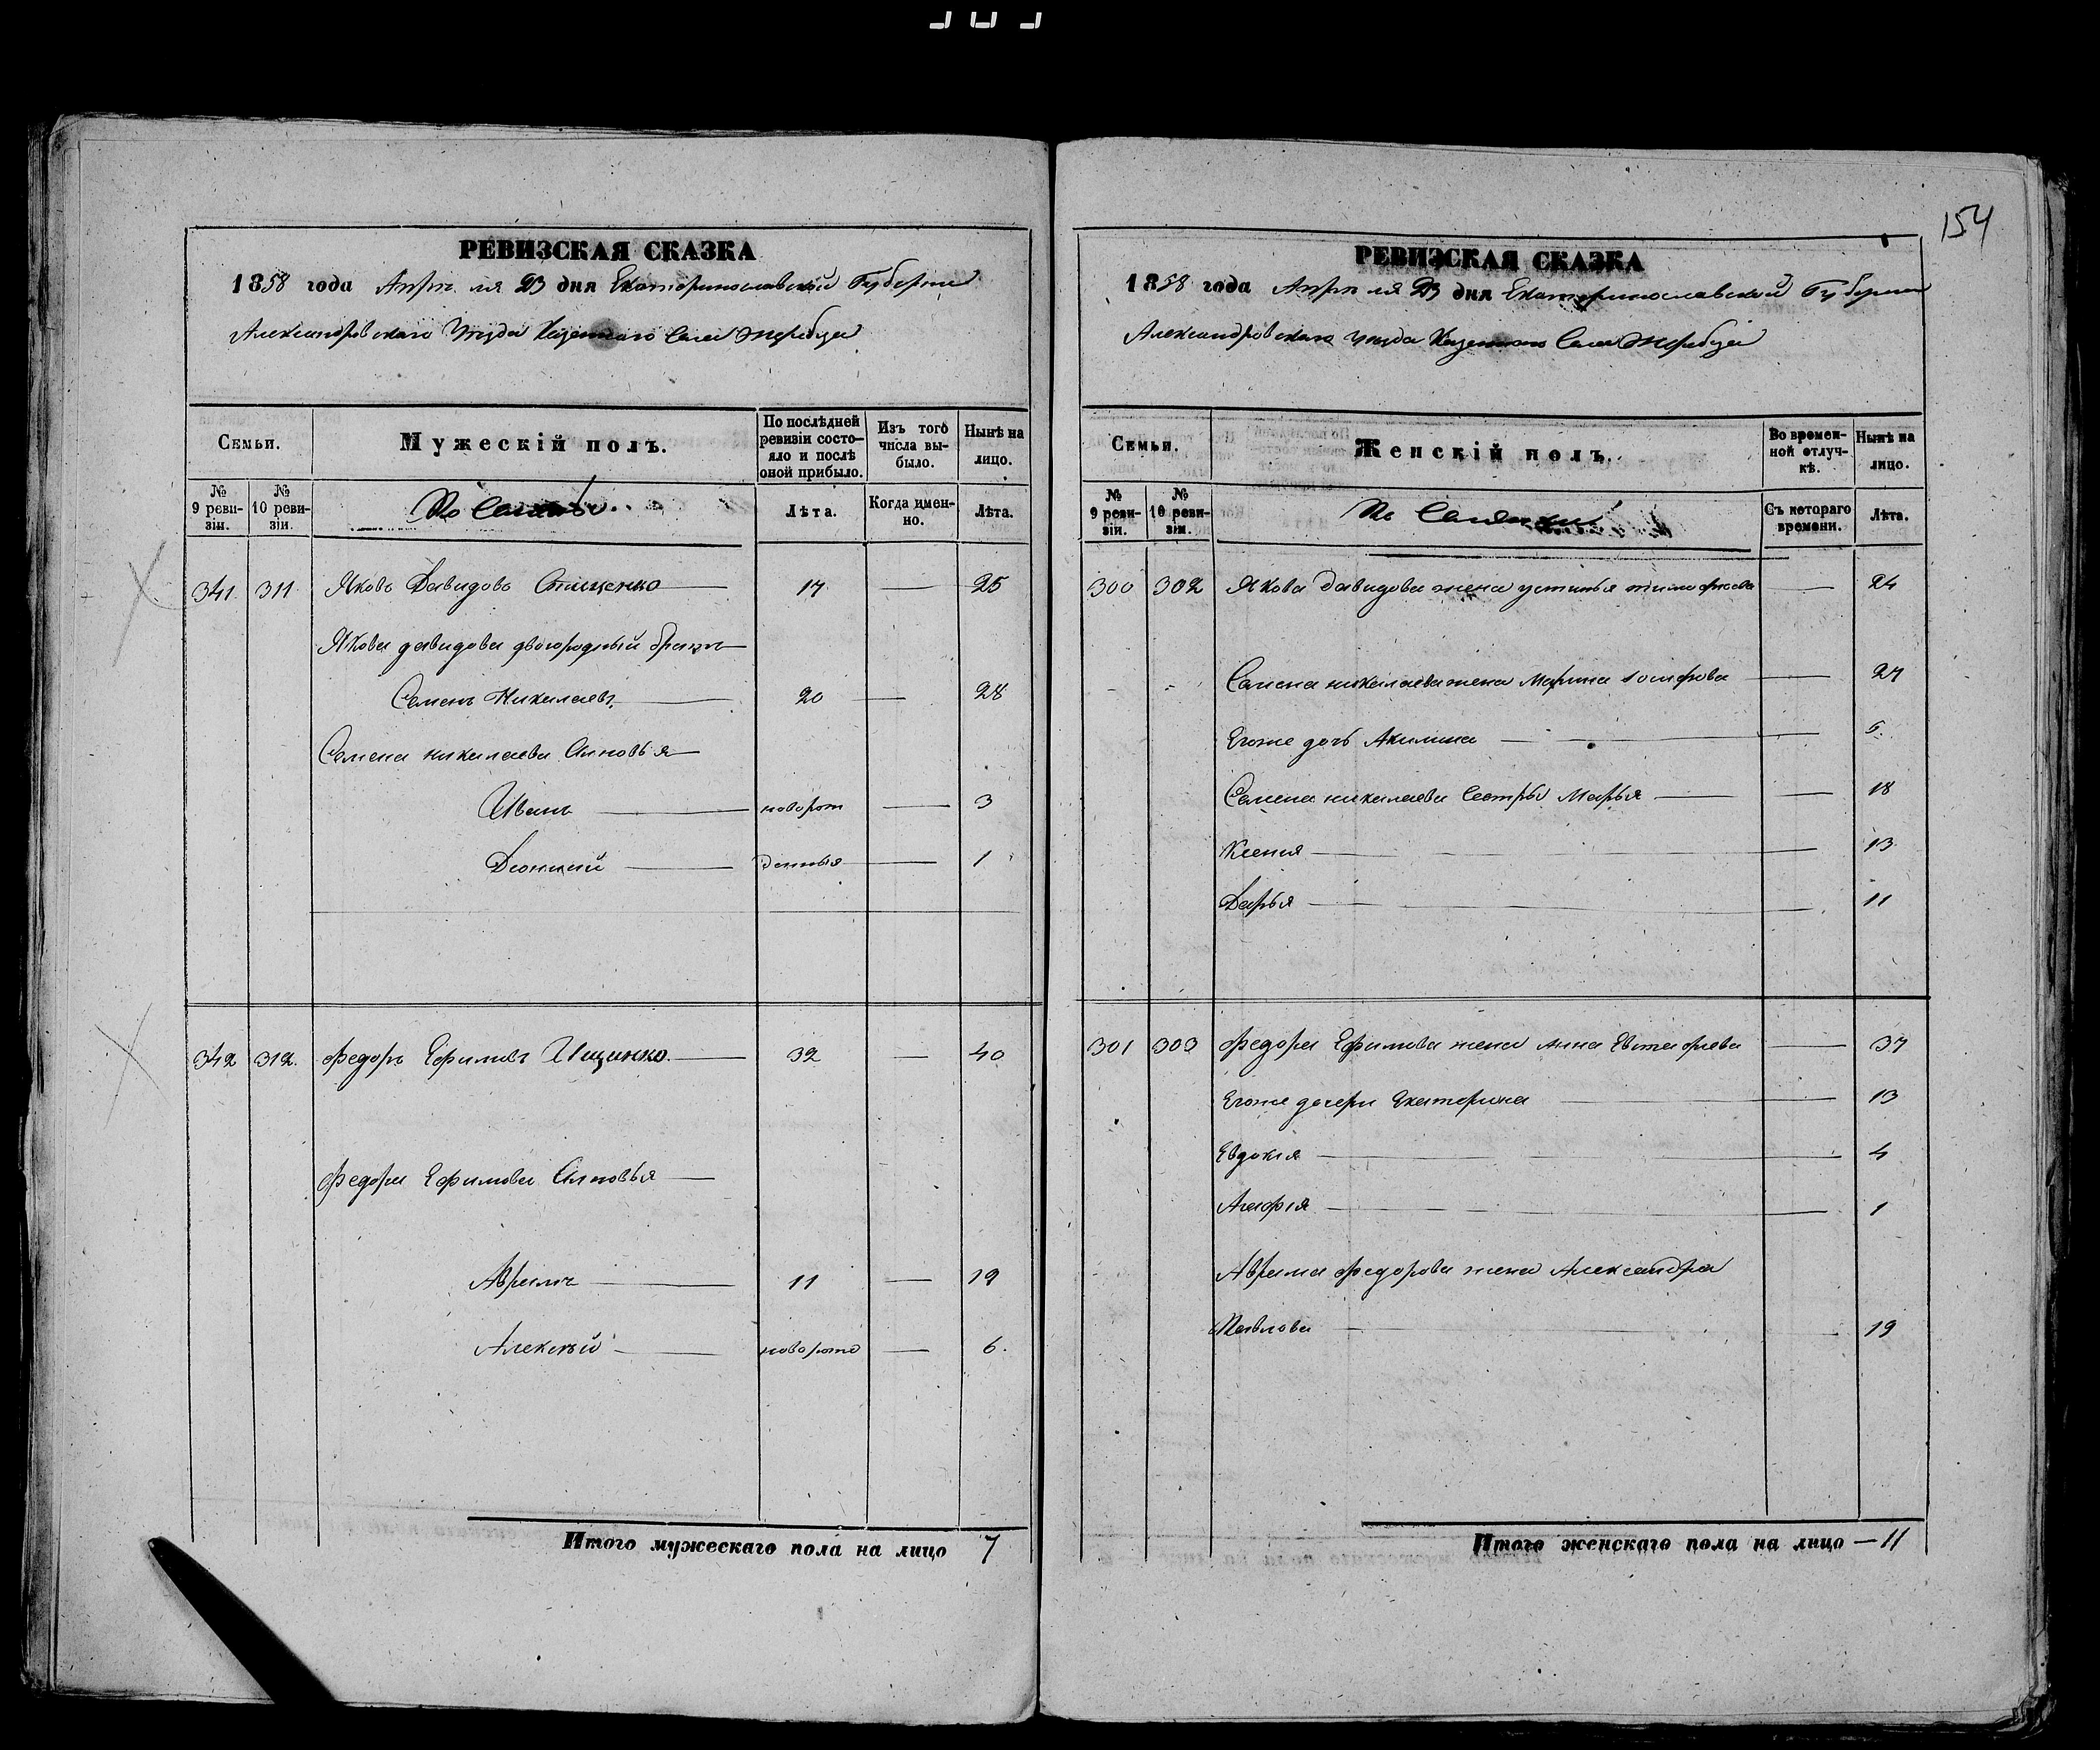 154
РЕВИЗСКАЯ СКАЗКА
1858 года Апреля 23 дня Екатеринославской Губернии
Александровскаго Уезда Казеннаго Села Жеребца
Семьи.
Мужескій полъ.
По послѣдней ревизіи состояло и послѣ оной прибыло.
Изъ того числа выбыло.
Нынѣ на лицо.
№ 9 ревизіи.
№ 10 ревизіи.
Лѣта.
Когда именно.
Лѣта.
341. 311 Яковъ Давидовъ Стищенко 17 25
Якова давидова двогородный братъ
Семенъ Николаевъ 20 28
Семена николаева Синовья
Иванъ новорож 3
Дионисий денныя 1
342 312. Федоръ Ефимовъ Ищинко 32 40
Федора Ефимова Синовья
Аврамъ 11 19
Алексѣй новорожд 6.
Итого мужескаго пола на лицо 7
РЕВИЗСКАЯ СКАЗКА
1858 года Апреля 23 дня Екатеринославской Губернии
Александровскаго уезда Казеннаго Села Жеребца
Семьи.
Женскій полъ.
Во временной отлучкѣ.
Нынѣ на лицо.
№ 9 ревизіи.
№ 10 ревизіи.
Съ котораго времени.
Лѣта.
300 302 Якова давидова жена устинья тимофеева 24
Семена николаева жена Марина Иосифова 27
Егоже дочь Акилина 5.
Семена николаева Сестры Марья 18
Ксения 13
Дарья 11
301 303 Федора Ефимова жена Анна Евстафиева 37
Егоже дочери Екатерина 13
Евдокия 4
Агафия 1
Аврама Федорова жена Александра
Павлова 19
Итого женскаго пола на лицо — 11